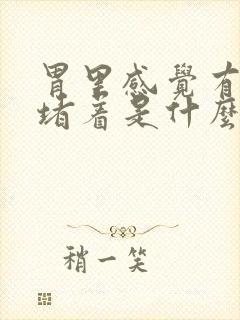 胃里感覺有
堵着是什麽
稍一笑